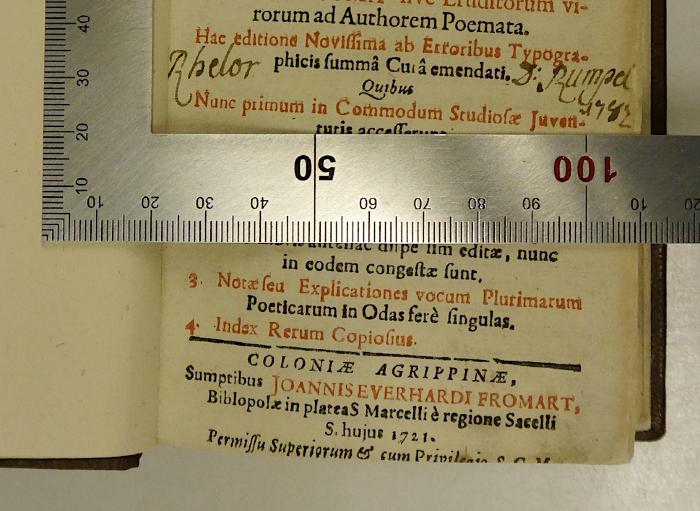 Eruditorum vi-
rorum ad Authorem Poemata.
Hac editione Noviſſima ab Erroribus Typogra-
phicis ſummâ Curâ emendati.
Rhetor
D: Rumpel
1782
Quibus
Nunc primum in Commodum Studioſæ Juven-
tutis acceſſerunt
40
30
20
10
50
100
10 20 30 40 60 70 80 90 10 20
editæ, nunc
in eodem congeſtæ ſunt.
3. Notæ ſeu Explicationes vocum Plurimarum
Poeticarum in Odas ferè ſingulas.
4. Index Rerum Copioſius.
COLONIÆ AGRIPPINÆ,
Sumptibus JOANNIS EVERHARDI FROMART,
Biblopolæ in plateaS Marcelli è regione Sacelli
S. hujus 1721.
Permiſſu Superiorum & cum Privilegio S. C. M.